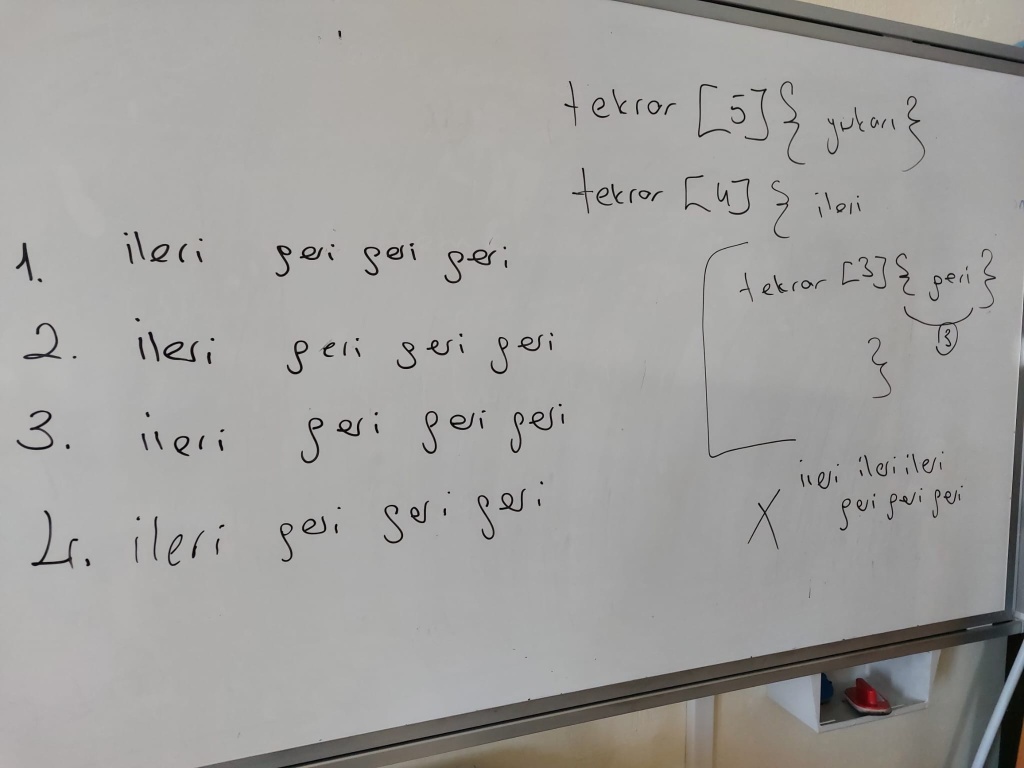 tekrar [5] { yukarı }
tekrar [4] { ileri
tekrar [3] { geri }
3
}
1. ileri geri geri geri
2. ileri geri geri geri
3. ileri geri geri geri
4. ileri geri geri geri
X ileri ileri ileri
geri geri geri